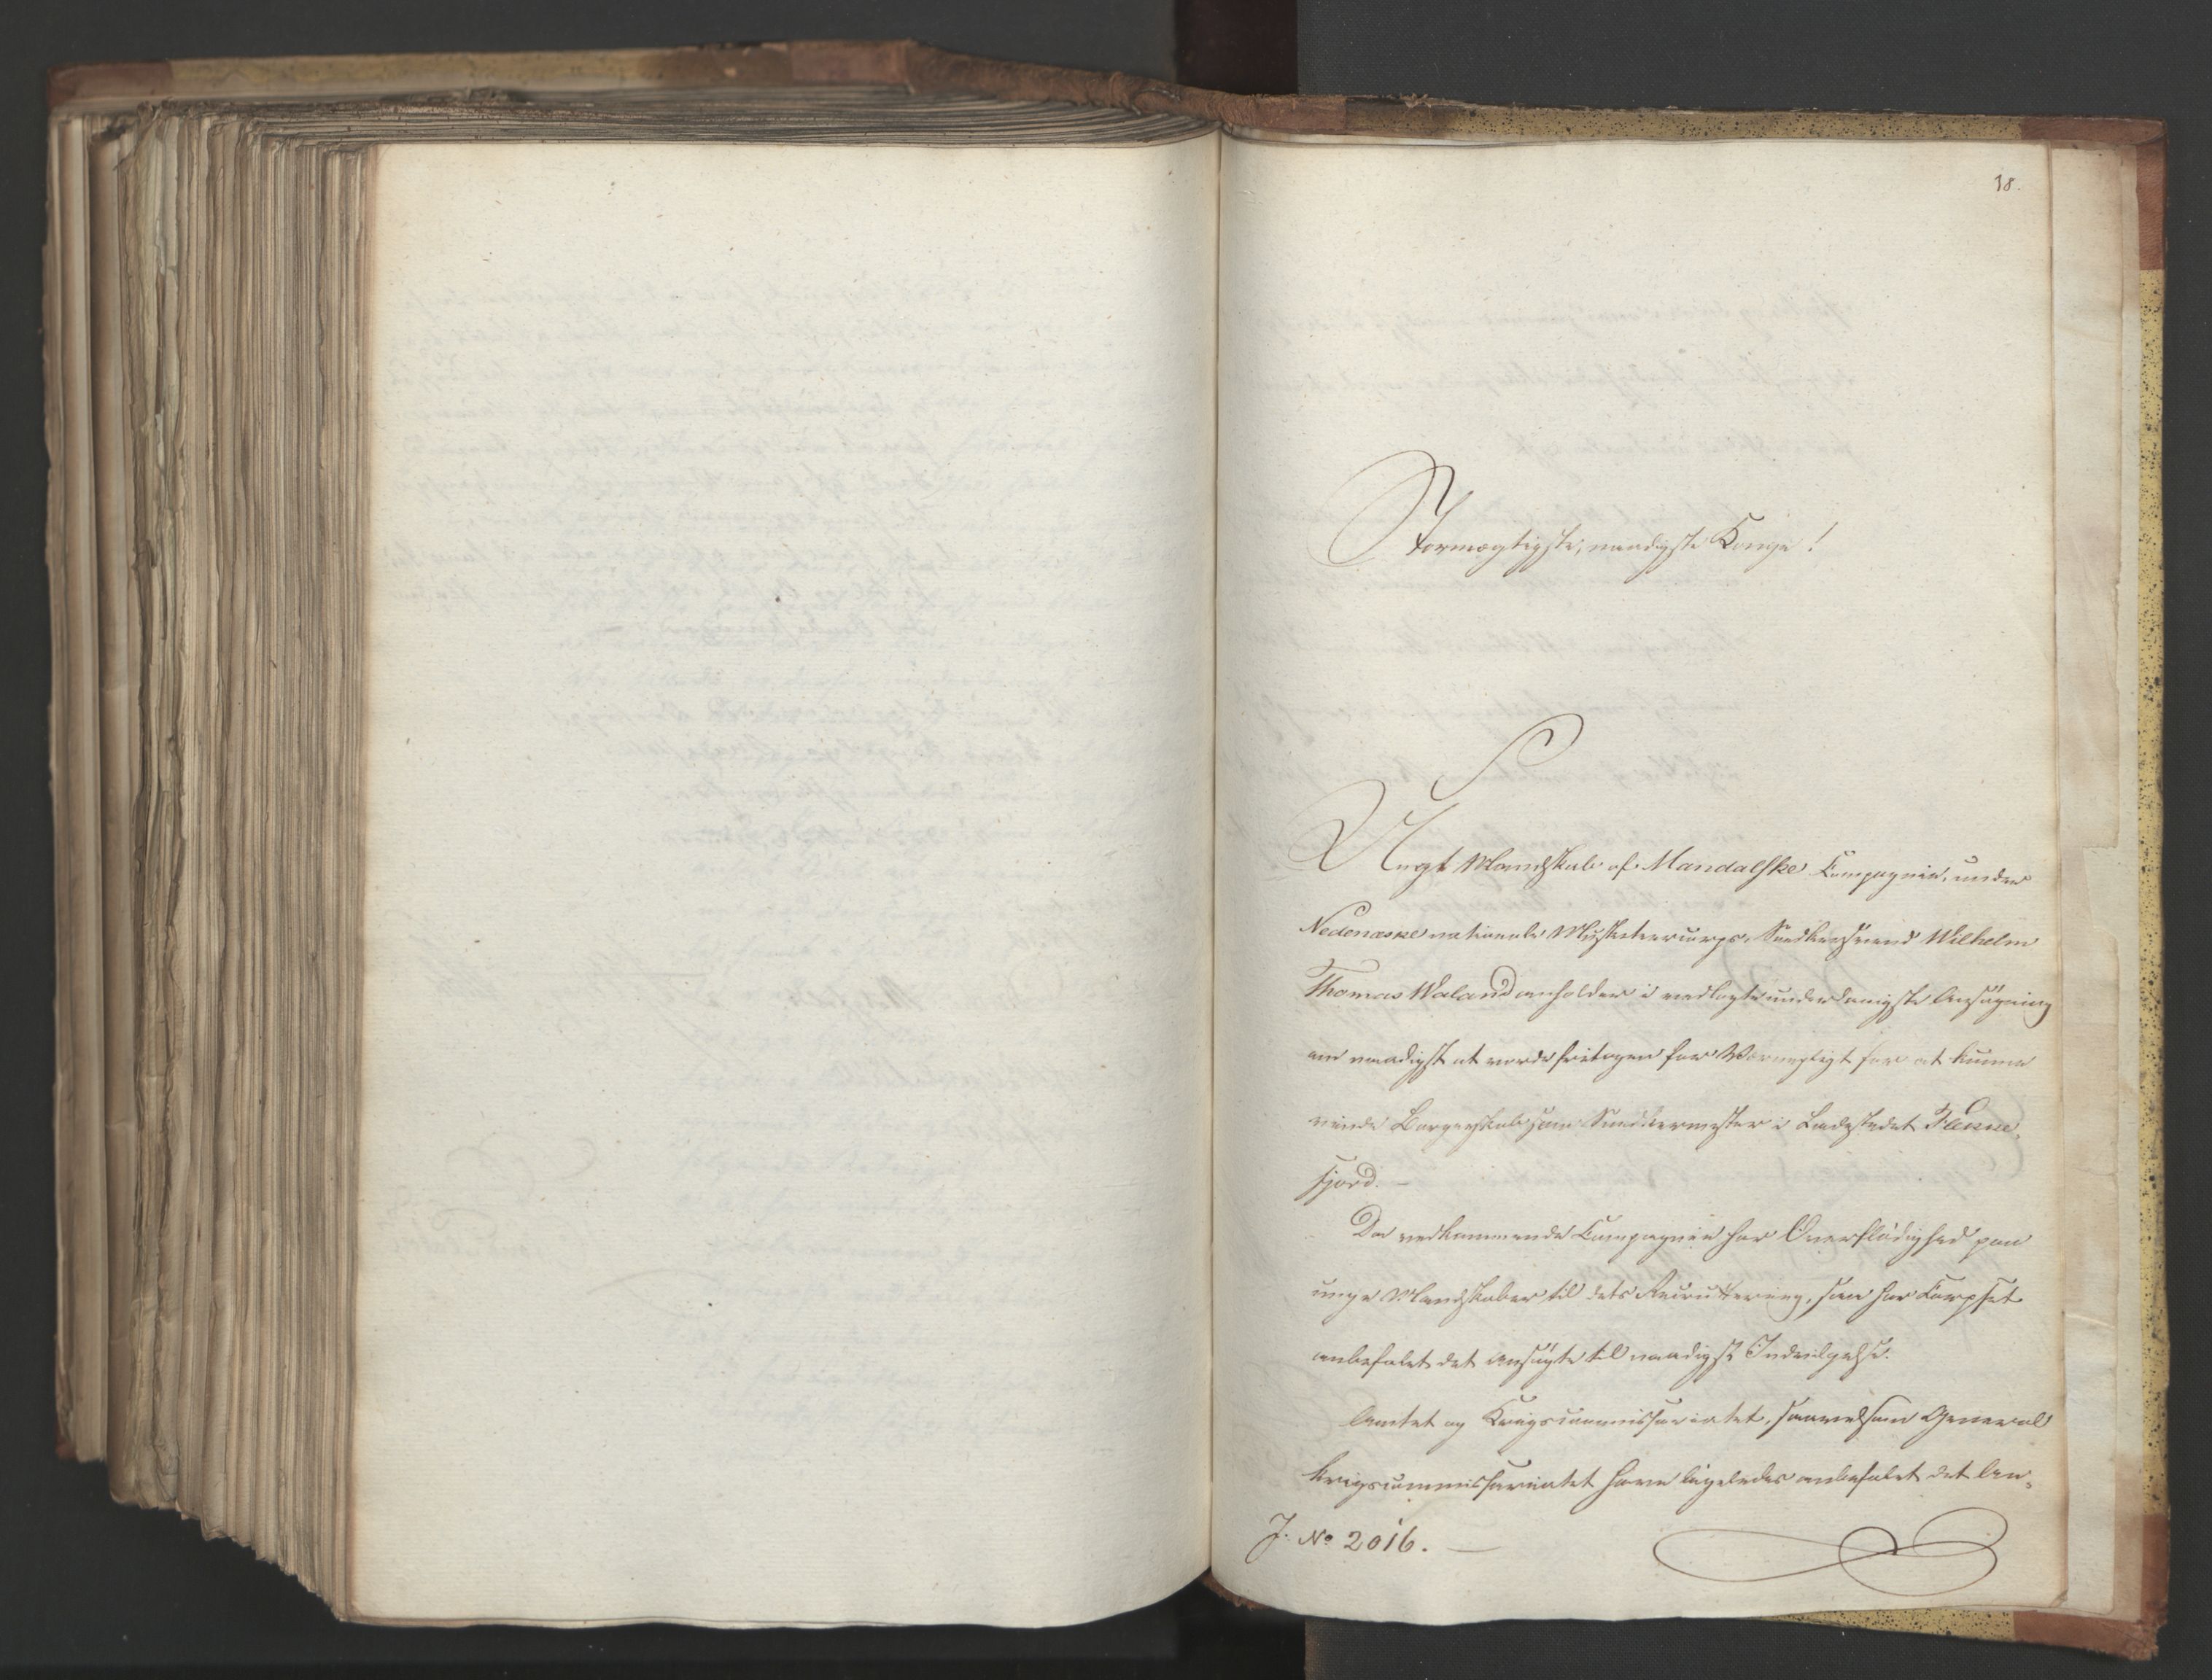 18.
Stormægtigste, naadigste Konge!
Ungt Mandskab af Mandalske Compagnie, under
Nedenæske nationale Musketeercorps, Snedkersvend Wilhelm
Thomas Waland anholder i vedlagte underdanigste Ansøgning
om naadigst at vorde fritagen forVærnepligt for at kunne
vinde Borgerskab som Snedkermester i Ladestedet Flekke-
fjord. —
Da vedkommende Compagnie har Overflødighed paa
unge Mandskaber til dets Recruttering, saa har Corpset
anbefalet det Ansøgte til naadigst Indvilgelse.
Amtet og Krigscommissariatet, saavelsom General
Krigscommissariatet have ligeledes anbefalet det An-
J. No 2016. —